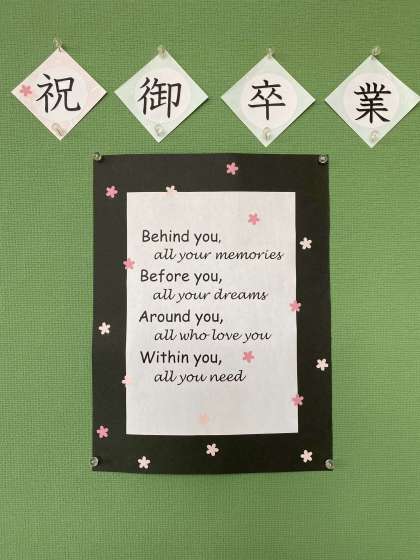 祝御卒業
Behind you,
all your memories
Before you,
all your dreams
Around you,
all who love you
Within you,
all you need